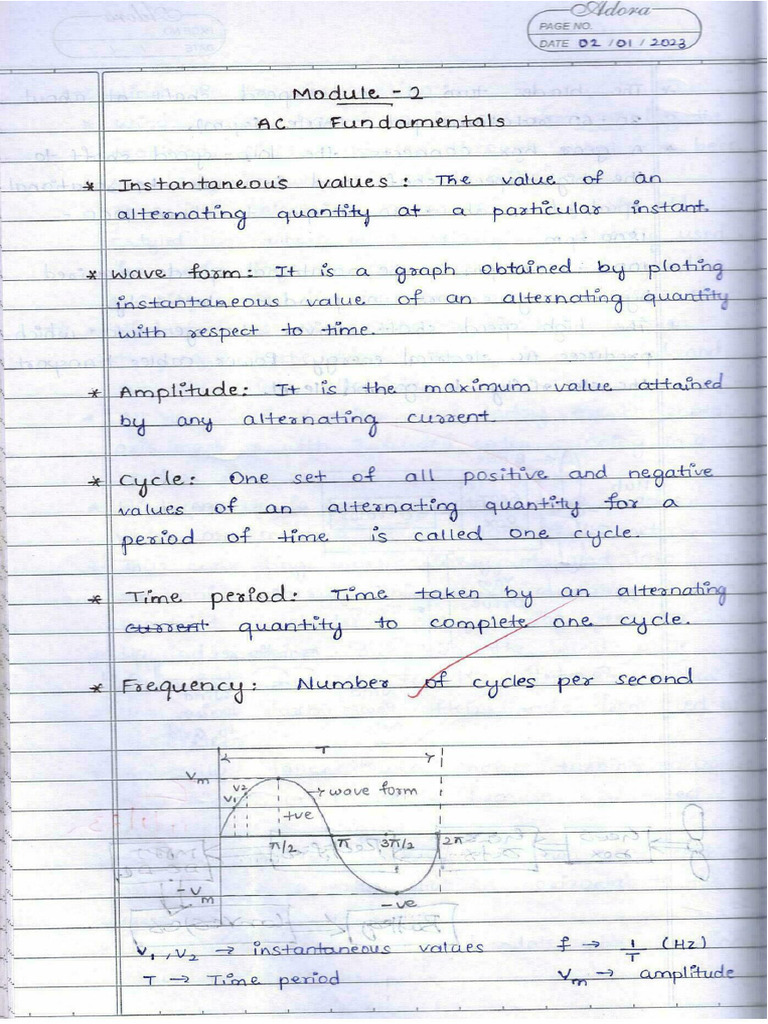 Adora
PAGE NO.
DATE 02/01/2023
Module - 2
AC Fundamentals
* Instantaneous values: The value of an
alternating quantity at a particular instant.
* Wave form: It is a graph obtained by ploting
instantaneous value of an alternating quantity
with respect to time.
* Amplitude: It is the maximum value attained
by any alternating current.
* Cycle: One set of all positive and negative
values of an alternating quantity for a
period of time is called one cycle.
* Time period: Time taken by an alternating
current quantity to complete one cycle.
* Frequency: Number of cycles per second
T
Vm V1 V2 → wave form
+ve
π/2 π 3π/2 2π
-Vm -ve
V1, V2 → instantaneous values f → 1/T (Hz)
T → Time period Vm → amplitude